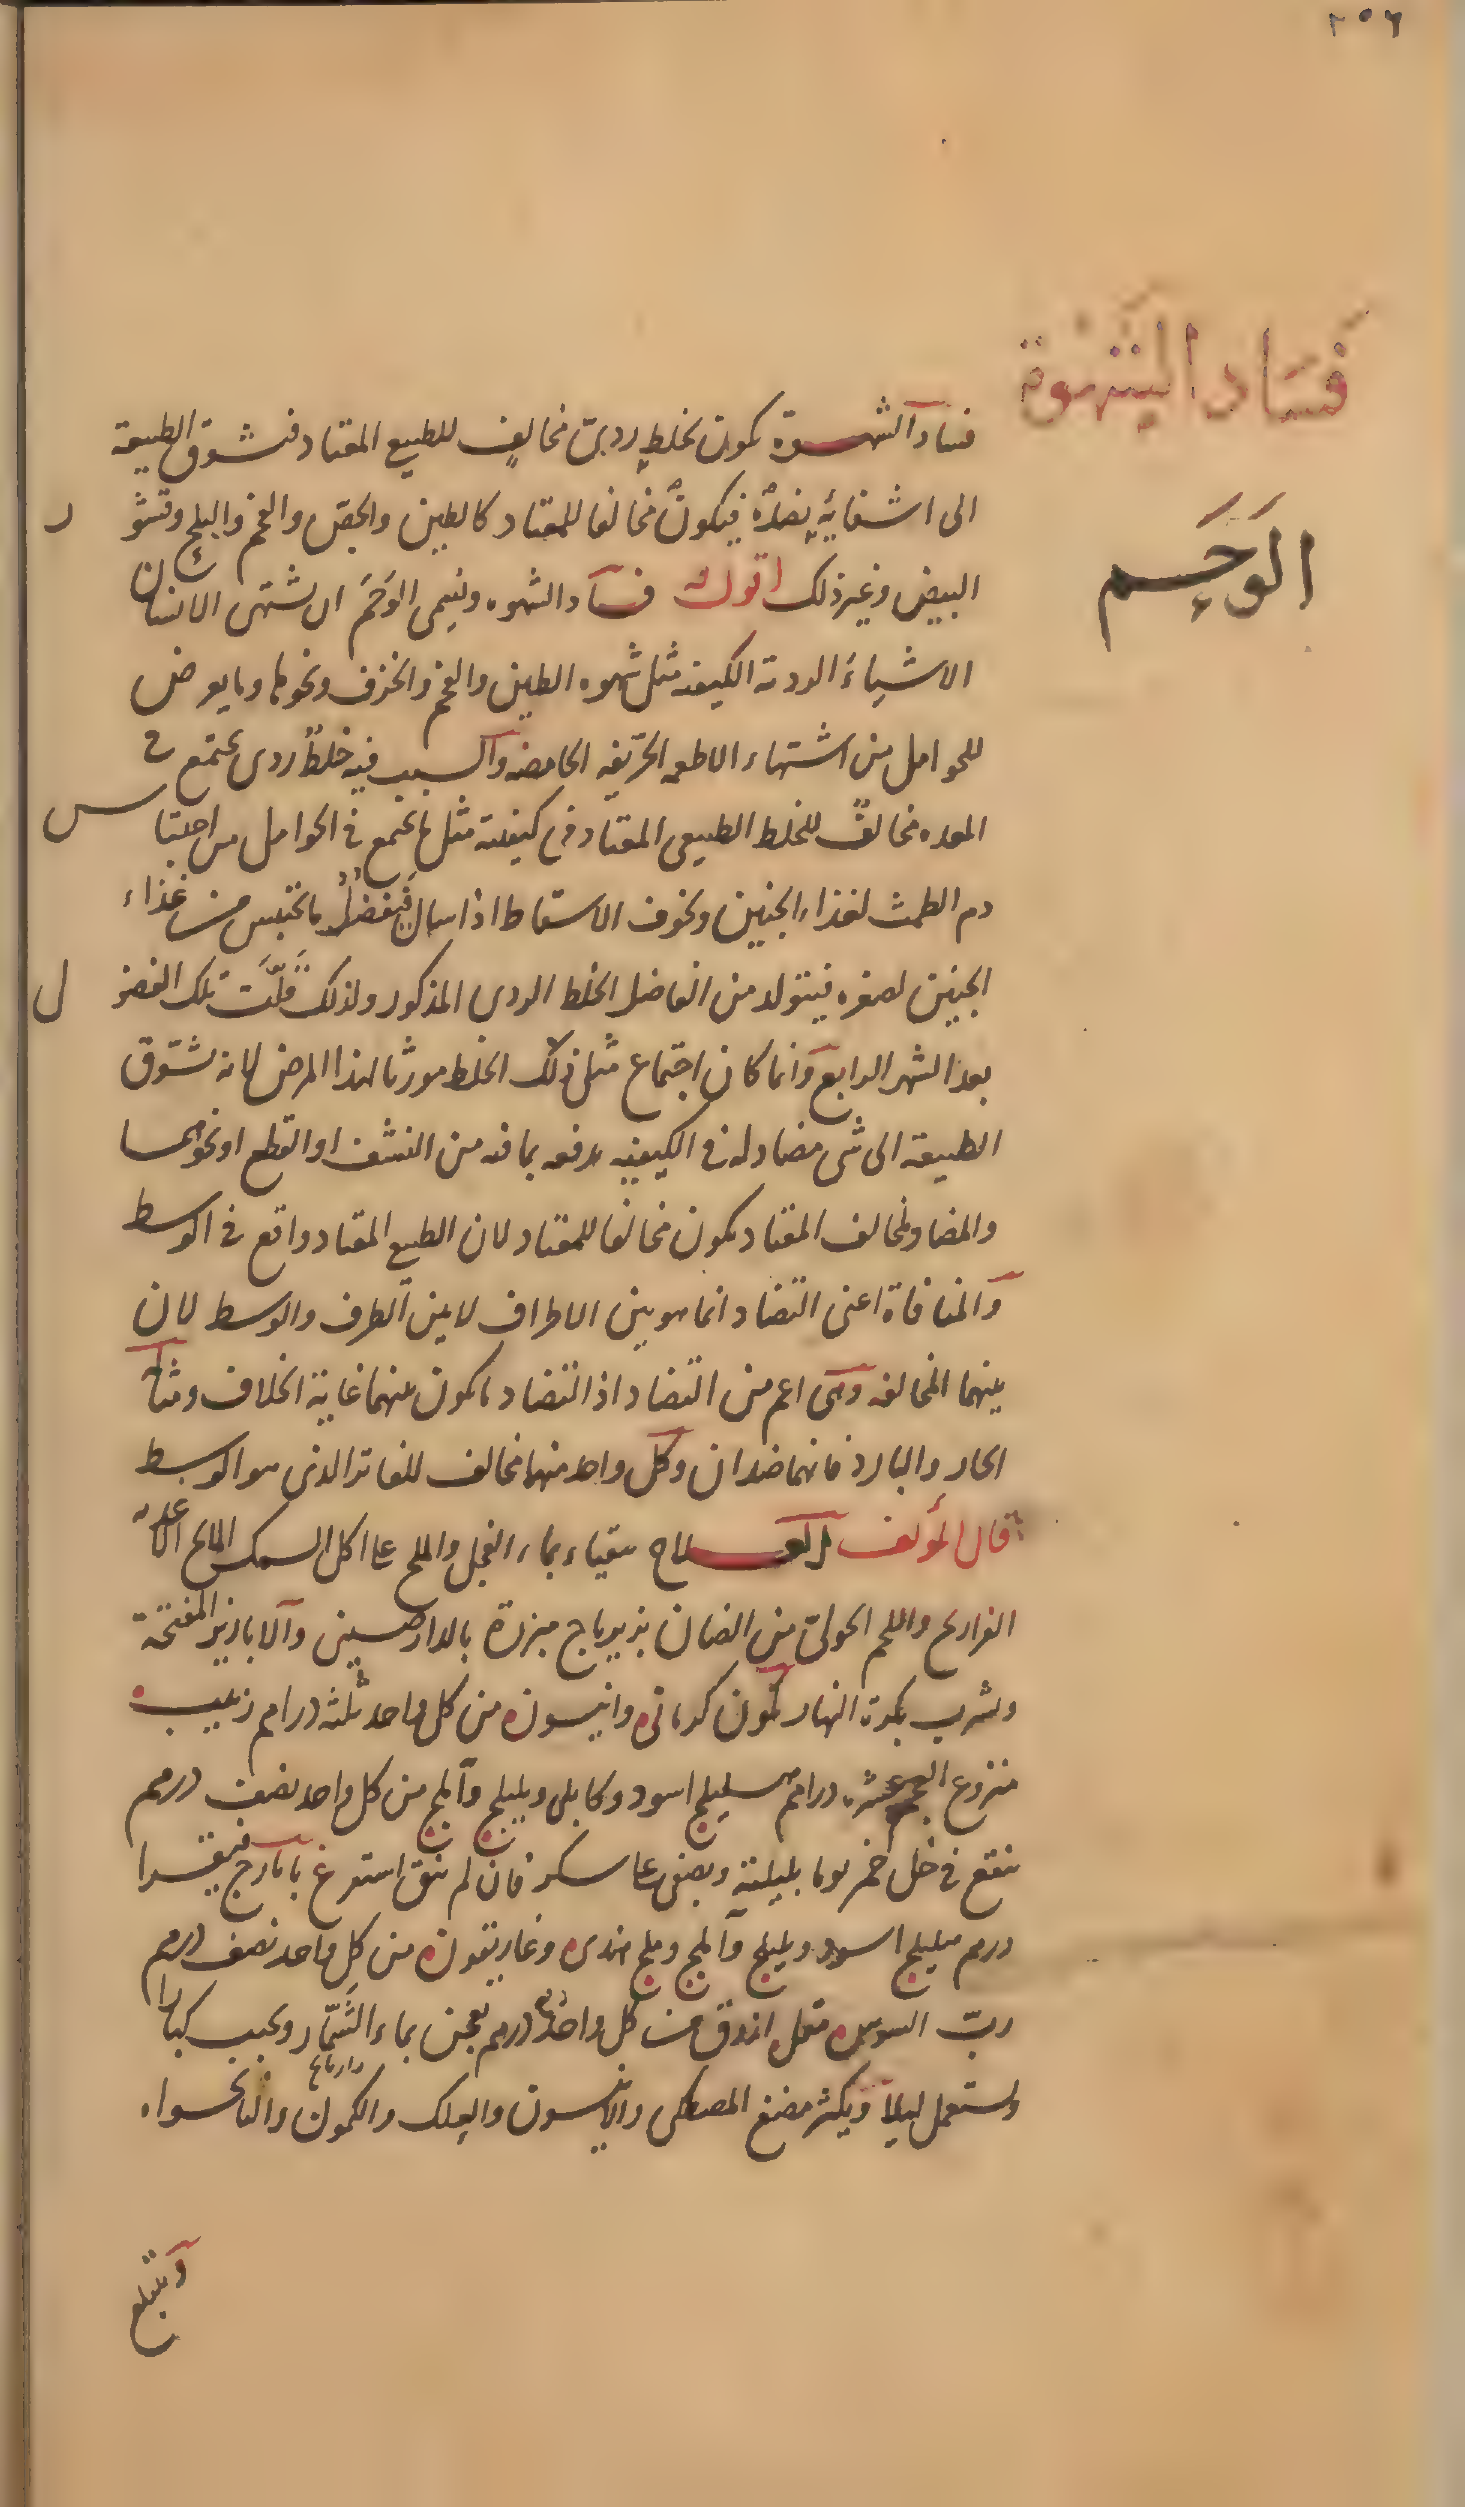 ٢٥٦
فَسَاد الشَهْوة
الوَحَم
فساد الشهوة يكون لخلط ردىّ مخالف للطبع المعتاد فتشوق الطبيعة
الى اشفائه بضده فيكون مخالفا للمعتاد كالطين والجص والفحم والبلح وقشور
البيض وغير ذلك اقول فساد الشهوه ويسمى الوَحَمَ ان يشتهى الانسان
الاشياءَ الردية الكيفه مثل شهوه الطين والفحم والخزف ونحوها وما يعرض
للحوامل من اشتهاء الاطعمه الحرّيفه الحامضه والسبب فيه خلطٌ ردى يجتمع فى
المعده مخالفٌ للخلط الطبيعى المعتاد فى كيفيته مثل ما يجتمع فى الحوامل من احتباس
دم الطمث لغذاء الجنين وخوف الاسقاط اذا سال فيفضلُ ما يحتبس من غذاء
الجنين لصغره فيتولد من الفاضل الخلط الردى المذكور ولذلك قلَّت تلك الفضول
بعد الشهر الرابع وانما كان اجتماع مثل ذلك الخلط مورثا لهذا المرض لانه تشوّق
الطبيعة الى شى مضاد له فى الكيفيه يدفعه بما فيه من النشف او القطع او نحوهما
والمضاد لمخالف المعتاد يكون مخالفا للمعتاد لان الطبع المعتاد واقع فى الوسط
والمنافاة اعنى التضاد انما هو بين الاطراف لا بين الطرف والوسط لان
بينهما المخالفه وهى اعم من التضاد اذ التضاد ما يكون بينهما غاية الخلاف ومثاله
الحار والبارد فانهما ضدان وكل واحد منهما مخالف للفاتر الذى هو الوسط
قال المؤلف العلاج يتقياء بماء الفجل والملح على اكل السمك المالح الغداء
الفراريج واللحم الحولىّ من الضان بزيرباج مبزرة بالدارصينى والابازير المفتحة
ويشرب بكرة النهار كمون كرمانى وانيسون من كل واحد ثلثه دراهم زبيب
منزوع العجم عشره دراهم هليلج اسود وكابلى وبليلج وآملج من كل واحد نصف درهم
ينقع فى خل خمر يوما بليلته ويصفى على سكر فان لم ينق استفرغ بايارج فيقرا
درهم هليلج اسود وبليلج وآملج وملح هندى وغاريقون من كل واحد نصف درهم
ربّ السوس مقل ازرق من كل واحد ربع درهم يعجن بماء الشَمَّار ويحبب كبارا
ويستعمل ليلا ويكثر مضغ المصطكى والانيسون والعلك والكمون والنانخواه
وابتلع